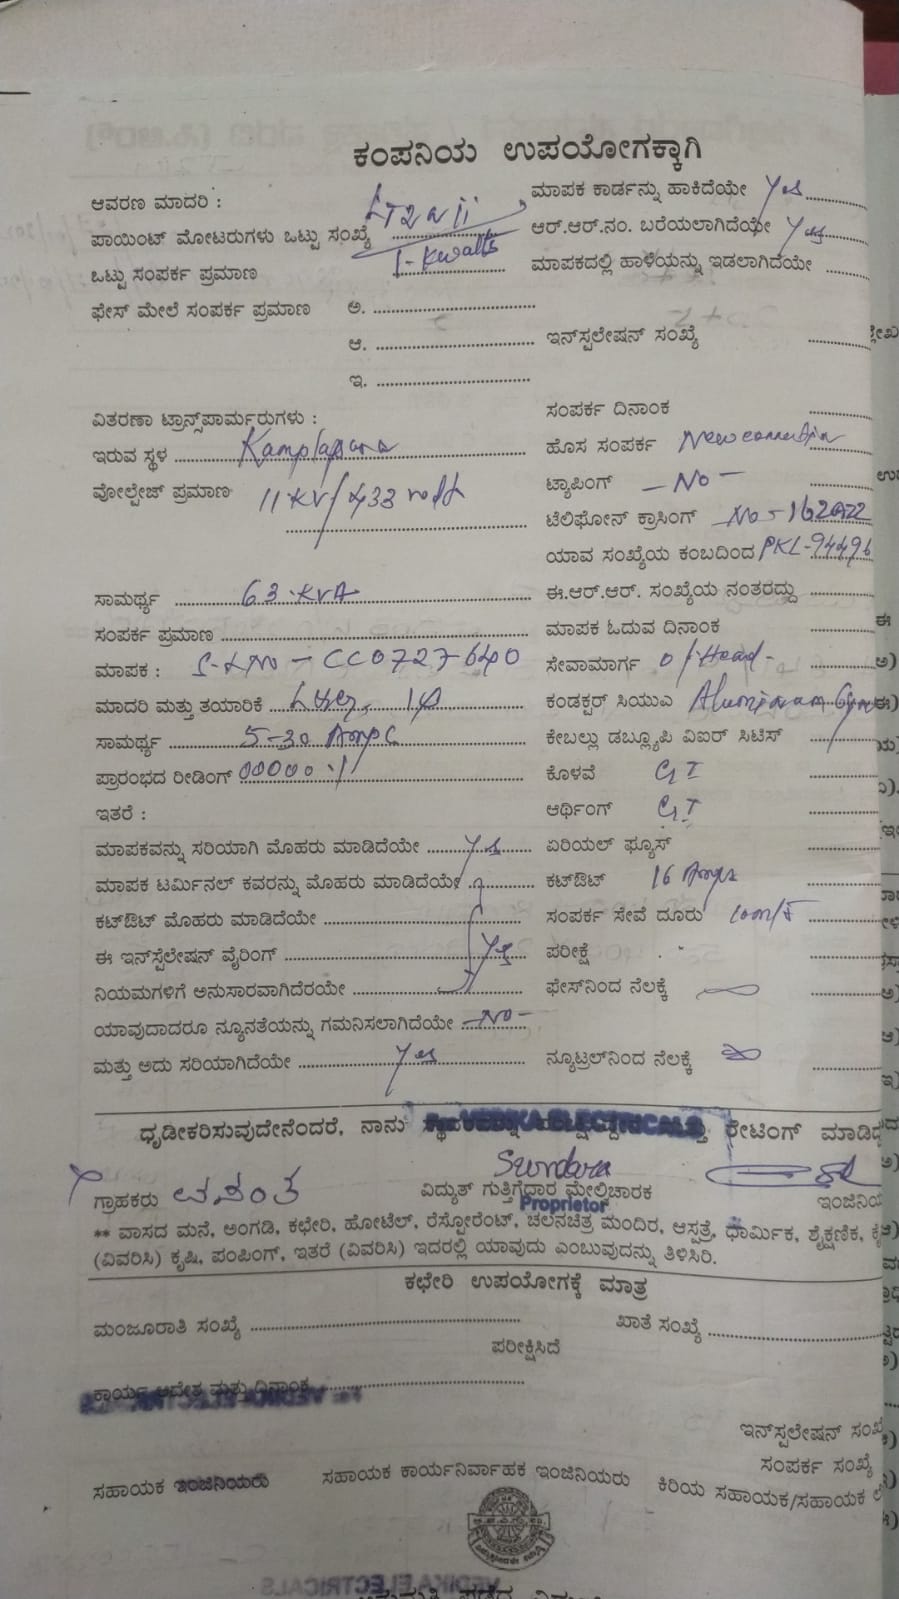 ಕಂಪನಿಯ ಉಪಯೋಗಕ್ಕಾಗಿ
ಆವರಣ ಮಾದರಿ : LT2aii
ಮಾಪಕ ಕಾರ್ಡನ್ನು ಹಾಕಿದೆಯೇ Yes
ಪಾಯಿಂಟ್ ಮೋಟರುಗಳು ಒಟ್ಟು ಸಂಖ್ಯೆ
ಆರ್.ಆರ್.ನಂ. ಬರೆಯಲಾಗಿದೆಯೇ Yes
ಒಟ್ಟು ಸಂಪರ್ಕ ಪ್ರಮಾಣ 1-Kwatts
ಮಾಪಕದಲ್ಲಿ ಹಾಳೆಯನ್ನು ಇಡಲಾಗಿದೆಯೇ
ಫೇಸ್ ಮೇಲೆ ಸಂಪರ್ಕ ಪ್ರಮಾಣ ಅ.
ಆ.
ಇನ್‌ಸ್ಪಲೇಷನ್ ಸಂಖ್ಯೆ
ಇ.
ವಿತರಣಾ ಟ್ರಾನ್ಸ್‌ಪಾರ್ಮರುಗಳು :
ಸಂಪರ್ಕ ದಿನಾಂಕ
ಇರುವ ಸ್ಥಳ Kamplapura
ಹೊಸ ಸಂಪರ್ಕ New connection
ವೋಲ್ಟೇಜ್ ಪ್ರಮಾಣ 11 KV/433 volt
ಟ್ಯಾಪಿಂಗ್ -No-
ಟೆಲಿಫೋನ್ ಕ್ರಾಸಿಂಗ್ No-
ಯಾವ ಸಂಖ್ಯೆಯ ಕಂಬದಿಂದ PKL-94496
ಸಾಮರ್ಥ್ಯ 63.KVA
ಈ.ಆರ್.ಆರ್. ಸಂಖ್ಯೆಯ ನಂತರದ್ದು
ಸಂಪರ್ಕ ಪ್ರಮಾಣ
ಮಾಪಕ ಓದುವ ದಿನಾಂಕ
ಮಾಪಕ : S-LNo-CC0727640
ಸೇವಾಮಾರ್ಗ O/Head-
ಮಾದರಿ ಮತ್ತು ತಯಾರಿಕೆ 1φ
ಕಂಡಕ್ಟರ್ ಸಿಯುಎ Aluminium
ಸಾಮರ್ಥ್ಯ 5-30 Amps
ಕೇಬಲ್ಲು ಡಬ್ಲ್ಯೂಪಿ ವಿಐರ್ ಸಿಟಿಸ್
ಪ್ರಾರಂಭದ ರೀಡಿಂಗ್ 00000.1
ಕೊಳವೆ GI
ಇತರೆ :
ಆರ್ಥಿಂಗ್ GI
ಮಾಪಕವನ್ನು ಸರಿಯಾಗಿ ಮೊಹರು ಮಾಡಿದೆಯೇ Yes
ಏರಿಯಲ್ ಫ್ಯೂಸ್
ಮಾಪಕ ಟರ್ಮಿನಲ್ ಕವರನ್ನು ಮೊಹರು ಮಾಡಿದೆಯೇ
ಕಟ್‌ಔಟ್ 16 Amps
ಕಟ್‌ಔಟ್ ಮೊಹರು ಮಾಡಿದೆಯೇ
ಸಂಪರ್ಕ ಸೇವೆ ದೂರು
ಈ ಇನ್‌ಸ್ಪೆಲೇಷನ್ ವೈರಿಂಗ್ Yes
ಪರೀಕ್ಷೆ
ನಿಯಮಗಳಿಗೆ ಅನುಸಾರವಾಗಿದೆರಯೇ
ಫೇಸ್‌ನಿಂದ ನೆಲಕ್ಕೆ
ಯಾವುದಾದರೂ ನ್ಯೂನತೆಯನ್ನು ಗಮನಿಸಲಾಗಿದೆಯೇ -No-
ಮತ್ತು ಅದು ಸರಿಯಾಗಿದೆಯೇ Yes
ನ್ಯೂಟ್ರಲ್‌ನಿಂದ ನೆಲಕ್ಕೆ
ಧೃಡೀಕರಿಸುವುದೇನೆಂದರೆ, ನಾನು VEDIKA ELECTRICALS ರೇಟಿಂಗ್ ಮಾಡಿದ
Sundara
ಗ್ರಾಹಕರು ವಸಂತ ವಿದ್ಯುತ್ ಗುತ್ತಿಗೆದಾರ ಮೇಲ್ವಿಚಾರಕ
Proprietor
** ವಾಸದ ಮನೆ, ಅಂಗಡಿ, ಕಛೇರಿ, ಹೋಟೆಲ್, ರೆಸ್ಟೋರೆಂಟ್, ಚಲನಚಿತ್ರ ಮಂದಿರ, ಆಸ್ಪತ್ರೆ, ಧಾರ್ಮಿಕ, ಶೈಕ್ಷಣಿಕ,
(ವಿವರಿಸಿ) ಕೃಷಿ, ಪಂಪಿಂಗ್, ಇತರೆ (ವಿವರಿಸಿ) ಇದರಲ್ಲಿ ಯಾವುದು ಎಂಬುವುದನ್ನು ತಿಳಿಸಿರಿ.
ಕಛೇರಿ ಉಪಯೋಗಕ್ಕೆ ಮಾತ್ರ
ಮಂಜೂರಾತಿ ಸಂಖ್ಯೆ
ಖಾತೆ ಸಂಖ್ಯೆ
ಪರೀಕ್ಷಿಸಿದೆ
ಕಾರ್ಯ ಆದೇಶ ಮತ್ತು ದಿನಾಂಕ
ಇನ್‌ಸ್ಪಲೇಷನ್ ಸಂಖ್ಯೆ
ಸಂಪರ್ಕ ಸಂಖ್ಯೆ
ಸಹಾಯಕ ಇಂಜಿನಿಯರು ಸಹಾಯಕ ಕಾರ್ಯನಿರ್ವಾಹಕ ಇಂಜಿನಿಯರು ಕಿರಿಯ ಸಹಾಯಕ/ಸಹಾಯಕ
VEDIKA ELECTRICALS